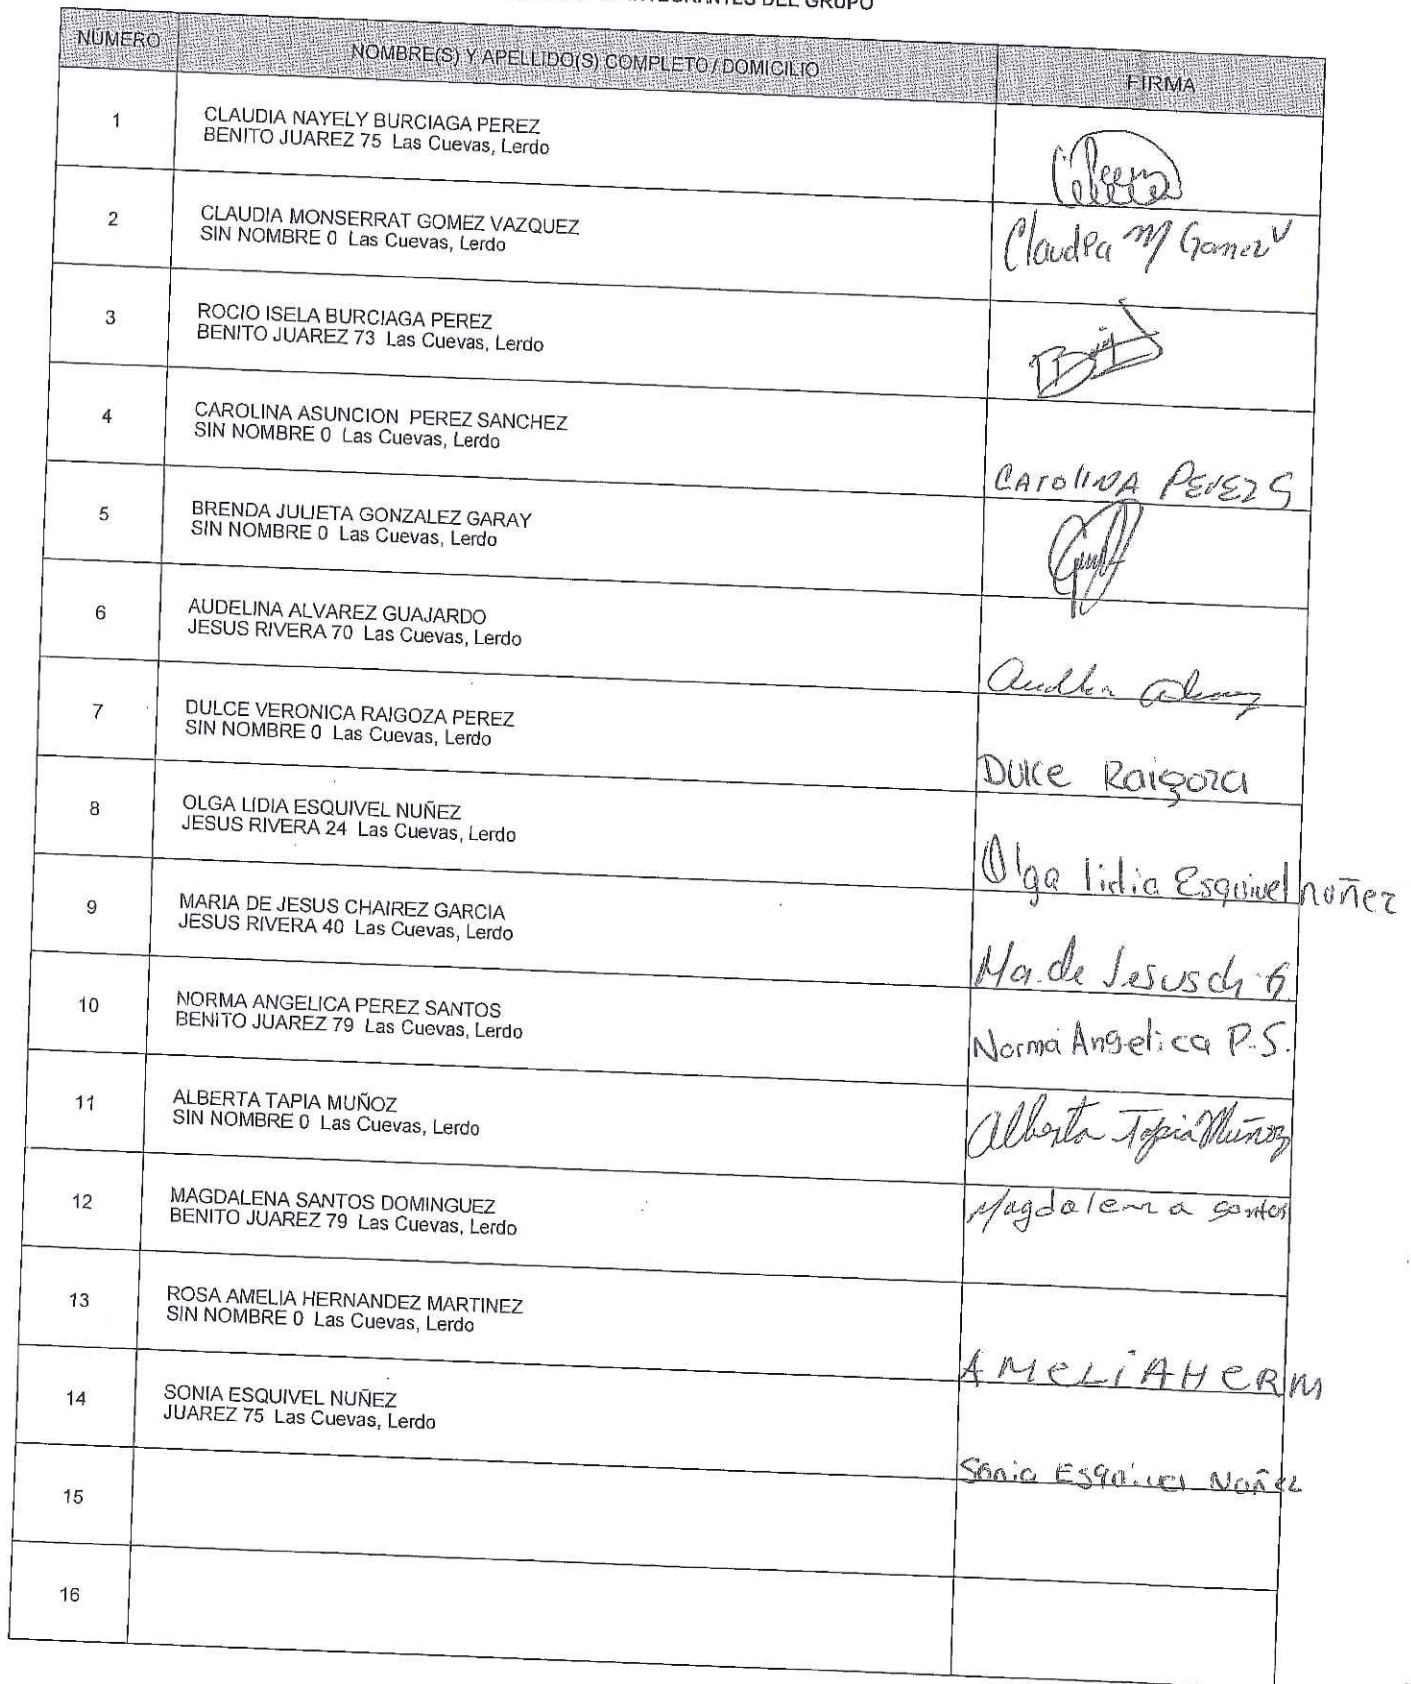 INTEGRANTES DEL GRUPO
NÚMERO NOMBRE(S) Y APELLIDO(S) COMPLETO / DOMICILIO FIRMA
1 CLAUDIA NAYELY BURCIAGA PEREZ
BENITO JUAREZ 75 Las Cuevas, Lerdo
2 CLAUDIA MONSERRAT GOMEZ VAZQUEZ
SIN NOMBRE 0 Las Cuevas, Lerdo
Claudia M Gomez V
3 ROCIO ISELA BURCIAGA PEREZ
BENITO JUAREZ 73 Las Cuevas, Lerdo
4 CAROLINA ASUNCION PEREZ SANCHEZ
SIN NOMBRE 0 Las Cuevas, Lerdo
CAROLINA PEREZ S
5 BRENDA JULIETA GONZALEZ GARAY
SIN NOMBRE 0 Las Cuevas, Lerdo
6 AUDELINA ALVAREZ GUAJARDO
JESUS RIVERA 70 Las Cuevas, Lerdo
7 DULCE VERONICA RAIGOZA PEREZ
SIN NOMBRE 0 Las Cuevas, Lerdo
Dulce Raigoza
8 OLGA LIDIA ESQUIVEL NUÑEZ
JESUS RIVERA 24 Las Cuevas, Lerdo
Olga lidia Esquivel nuñez
9 MARIA DE JESUS CHAIREZ GARCIA
JESUS RIVERA 40 Las Cuevas, Lerdo
Ma. de Jesus ch G
10 NORMA ANGELICA PEREZ SANTOS
BENITO JUAREZ 79 Las Cuevas, Lerdo
Norma Angelica P.S.
11 ALBERTA TAPIA MUÑOZ
SIN NOMBRE 0 Las Cuevas, Lerdo
Alberta Tapia Muñoz
12 MAGDALENA SANTOS DOMINGUEZ
BENITO JUAREZ 79 Las Cuevas, Lerdo
Magdalena santos
13 ROSA AMELIA HERNANDEZ MARTINEZ
SIN NOMBRE 0 Las Cuevas, Lerdo
AMELIA HERM
14 SONIA ESQUIVEL NUÑEZ
JUAREZ 75 Las Cuevas, Lerdo
Sonia Esquivel Nuñez
15
16